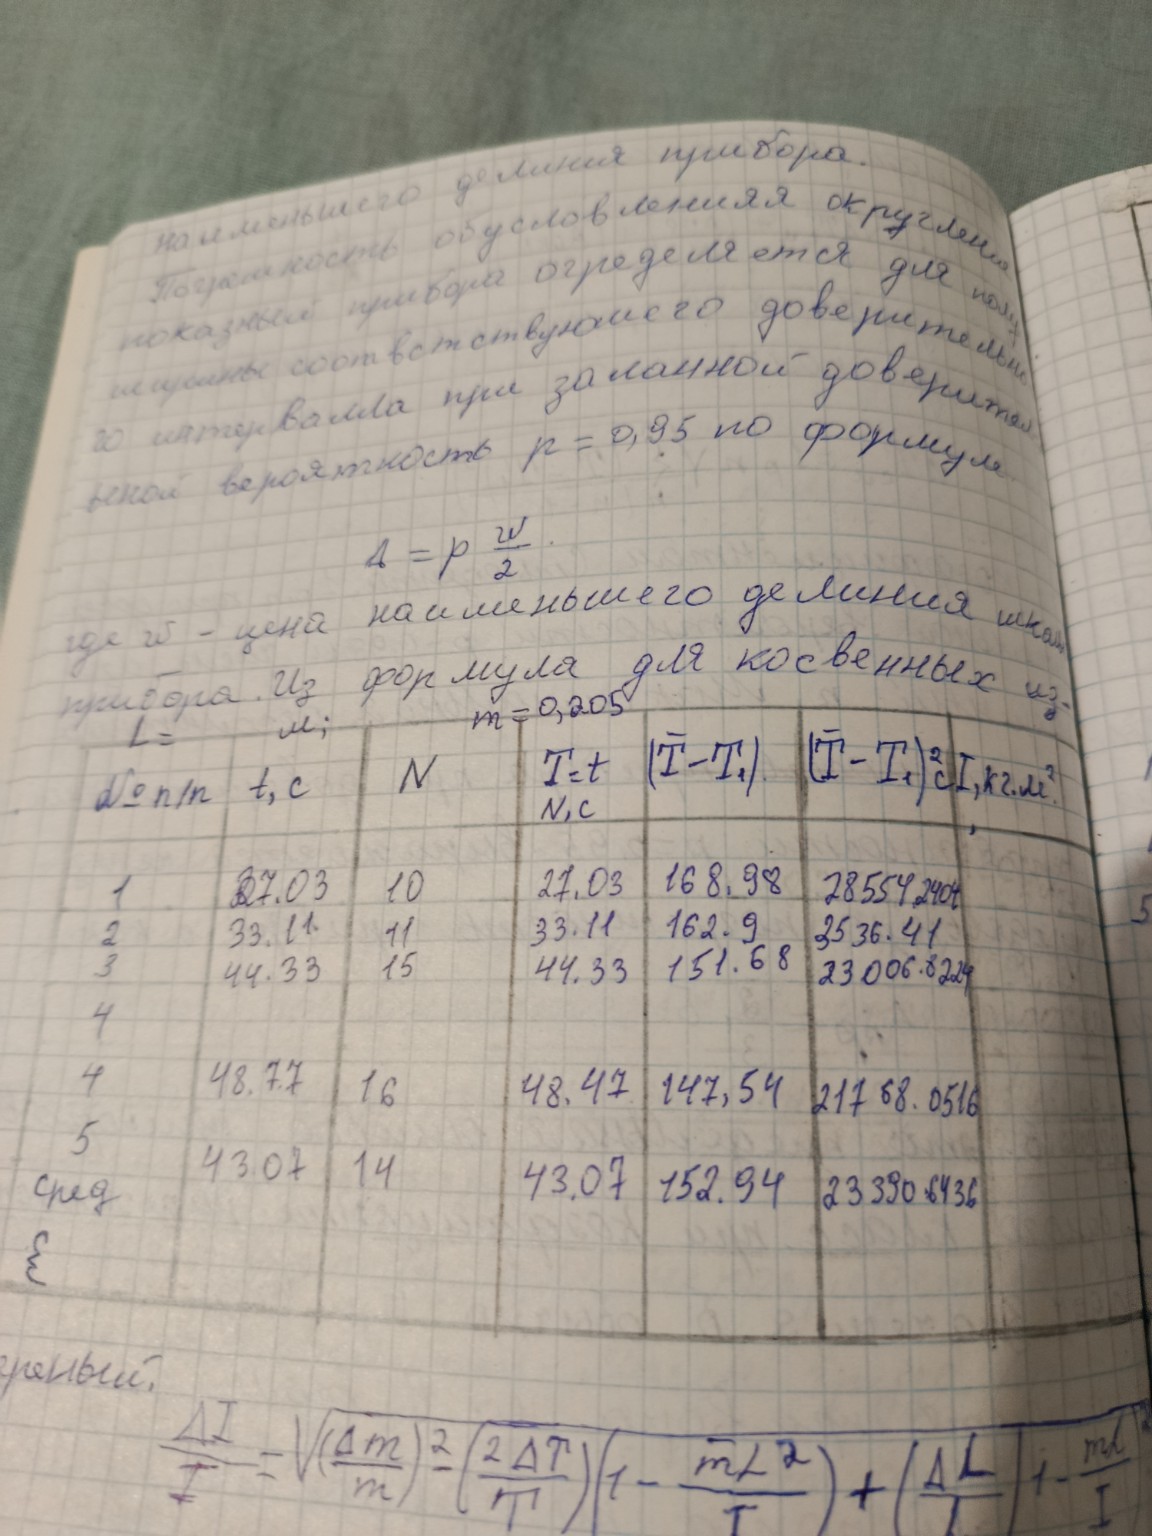 наименьшего деления прибора.
Погрешность обусловленияя округления
показный прибора определяется для полу
ширины соответствующего доверительно
го интервалла при заланной доверител
ьной вероятность p = 0,95 по формуле
Δ = p w/2.
где w - цена наименьшего деминия шкалы
прибора. Из формула для косвенных из-
L = м; m = 0,205
№ п/п t, c N T = t N, c (T̄ - T₁). (T̄ - T₁)² c I, кг.м².
1 27.03 10 27.03 168.98 28554.2404
2 33.11. 11 33.11 162.9 2536.41
3 44.33 15 44.33 151.68 23006.8224
4
4 48.77 16 48.47 147,54 21768.0516
5 43.07 14 43.07 152.94 23390.6436
сред
Σ
ΔI/I = √(Δm/m)² = (2ΔT/T)(1 - m̄L²/I) + (ΔL/ 1 - mL/I ²